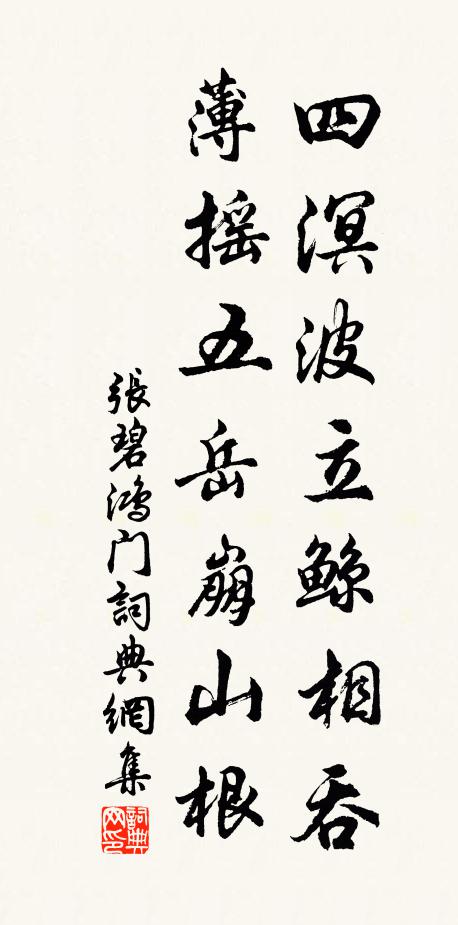 四溟波立鲸相吞
薄摇五岳崩山根
張碧鸿门詞典網集
詞典网印